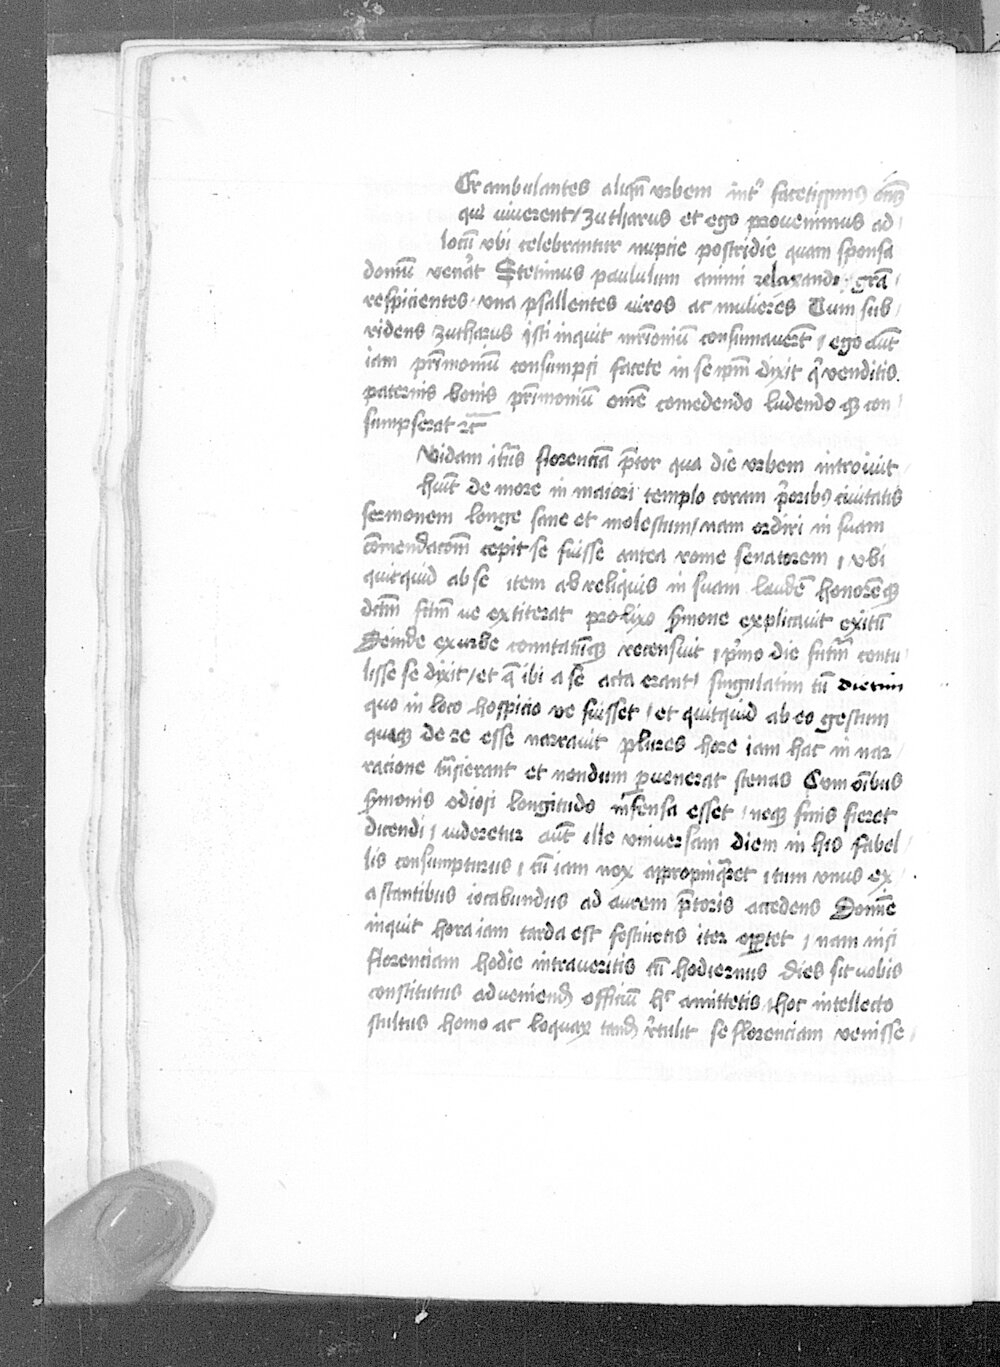 Er ambulantes aliqn̄ vrbem int' facetissimus om̄iū
qui viuerent / zutharus et ego prouenimus ad
locū vbi celebrantur nuptie postridie quam sponsa
domū venāt Stetimus paululum animi relaxandi grā
respicientes vna psallentes viros ac mulieres Tum sub
ridens zutharus isti inquit mr̄imoniū consumauerūt / ego aūt
iam pr̄imoniū consumpsi facete in se ip̄m dixit q̄ venditis
paternis bonis pr̄imoniū om̄e comedendo ludendo qȝ con
sumpserat rc̄
Vidam itūs florenciā p̄tor qua die vrbem introiuit
huīt de more in maiori templo coram p̄oribȝ ciuitatis
sermonem longe sane et molestum / nam ordiri in suam
cōmendacōm̄ cepit se fuisse antea rome senatorem / vbi
quitquid ab se item ab reliquis in suam laudē honorēqȝ
dc̄m fc̄m ve extiterat prolixo sermone explicauit exitū
Deinde ex vrbe comitatūqȝ recensuit / p̄mo die sutriū contu
lisse se dixit / et q̄ ibi a se acta erant / singulatim tū dictim
quo in loco hospicio ve fuisset / et quitquid ab eo gestum
quaqȝ de re esse narrauit plures hore iam hac in nar
ratione trāsierant et nondum peruenerat stenas Cum om̄ibus
sermonis odiosi longitudo infensa esset / neqȝ finis fieret
dicendi / videretur aūt ille vniuersam diem in his fabel
lis consumpturus / cū iam nox appropinq̄ret / tum vnus ex
astantibus iocabundus ad aurem p̄toris accedens Domīe
inquit hora iam tarda est festinetis iter oportet / nam nisi
florenciam hodie intraueritis cū hodiernus dies sit vobis
constitutus ad veniendū officiū h° amittetis / hoc intellecto
stultus homo ac loquax tandē r̄tulit se florenciam venisse